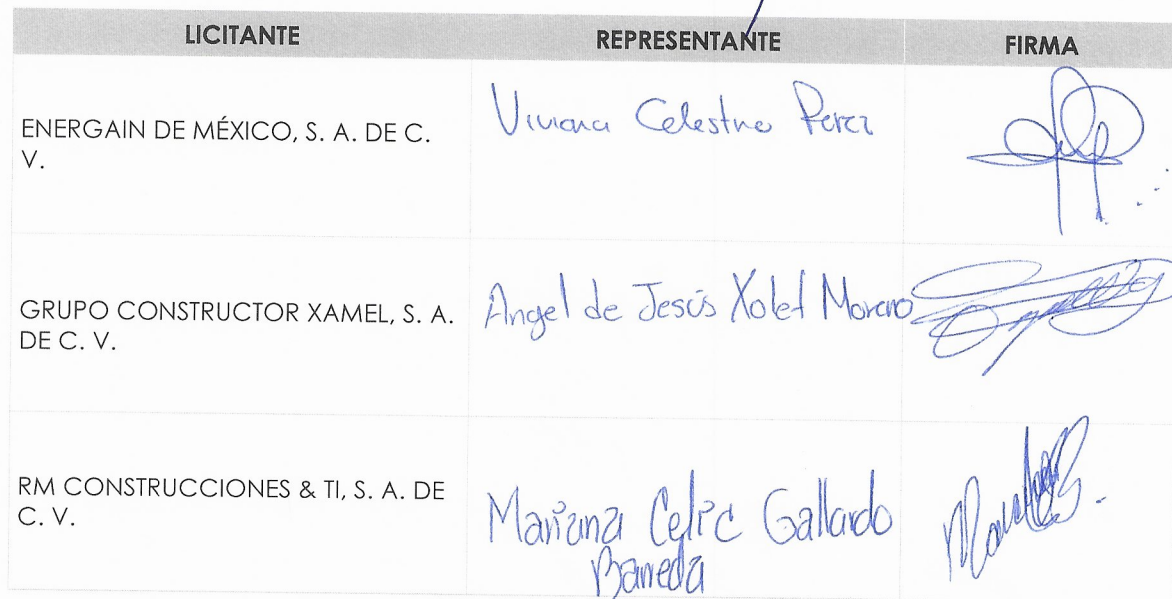 LICITANTE REPRESENTANTE FIRMA
ENERGAIN DE MÉXICO, S. A. DE C.
V.
Viviana Celestino Perez
GRUPO CONSTRUCTOR XAMEL, S. A.
DE C. V.
Ángel de Jesús Xolet Moreno
RM CONSTRUCCIONES & TI, S. A. DE
C. V.
Mariana Celic Gallardo